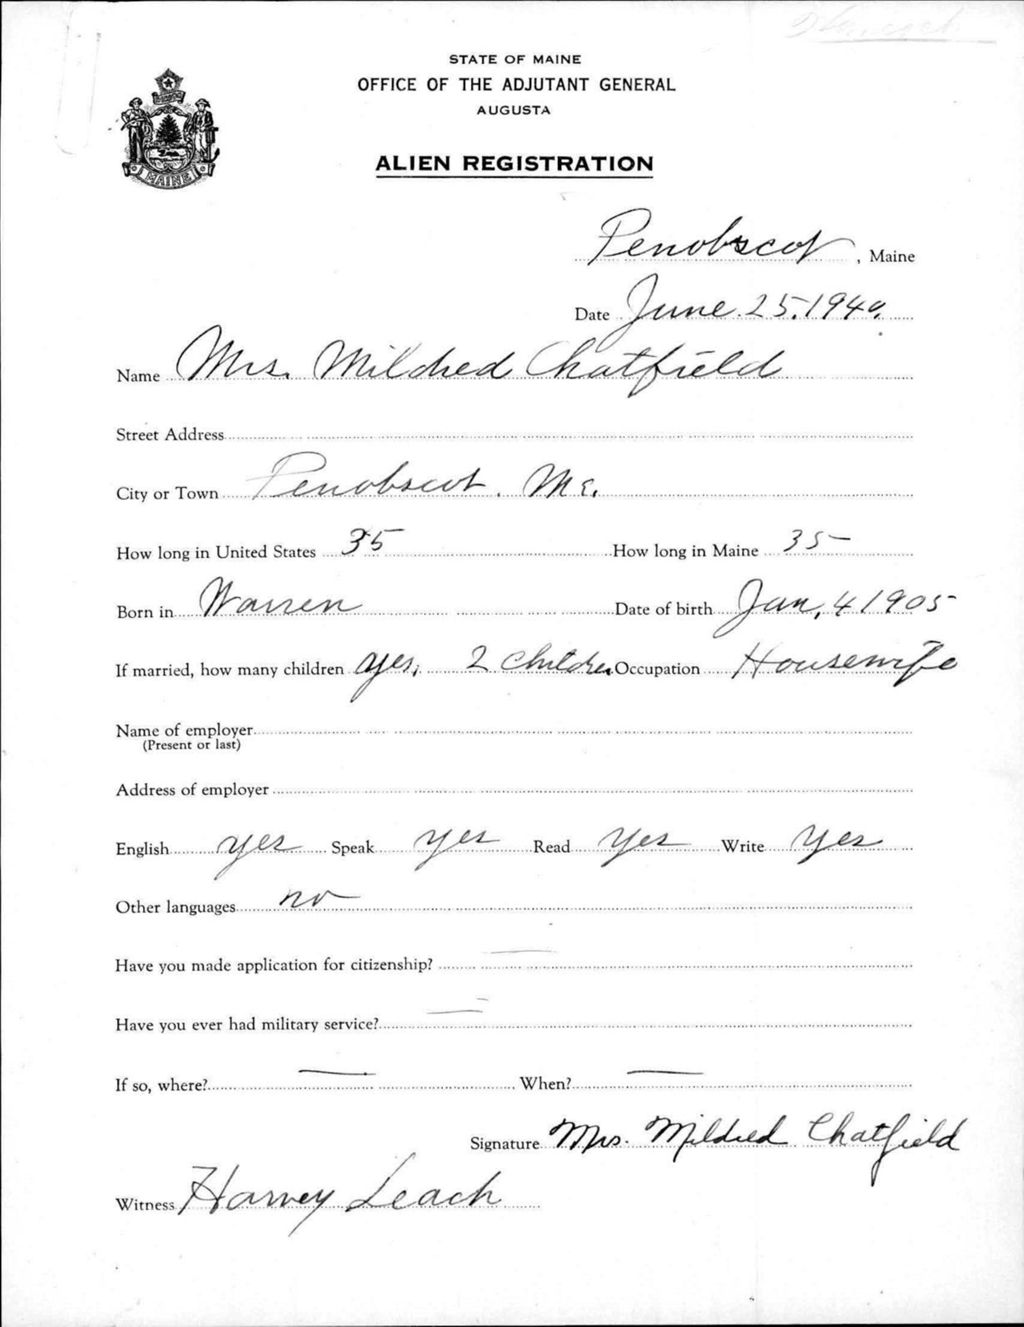 Hancock
STATE OF MAINE
OFFICE OF THE ADJUTANT GENERAL
AUGUSTA
MAINE
ALIEN REGISTRATION
Penobscot, Maine
Date June 25, 1940.
Name Mrs. Mildred Chatfield
Street Address
City or Town Penobscot, Me.
How long in United States 35 How long in Maine 35
Born in Warren Date of birth Jan, 4 1905
If married, how many children yes, 2 children Occupation Housewife
Name of employer
(Present or last)
Address of employer
English yes Speak yes Read yes Write yes
Other languages no
Have you made application for citizenship? —
Have you ever had military service? —
If so, where? — When? —
Signature Mrs. Mildred Chatfield
Witness Harvey Leach